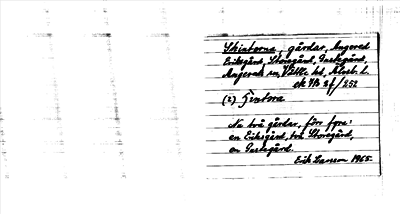 Skintorna, gårdar, Angered
Eriksgård, Storegård, Gustsgård,
Angereds sn, Vättle hd, Älvsb. l.
ok VB 2:1/252
(2) Tintora
Nu två gårdar, förr fyra:
en Eriksgård, två Storegård,
en Gustsgård.
Erik Larsson 1965.